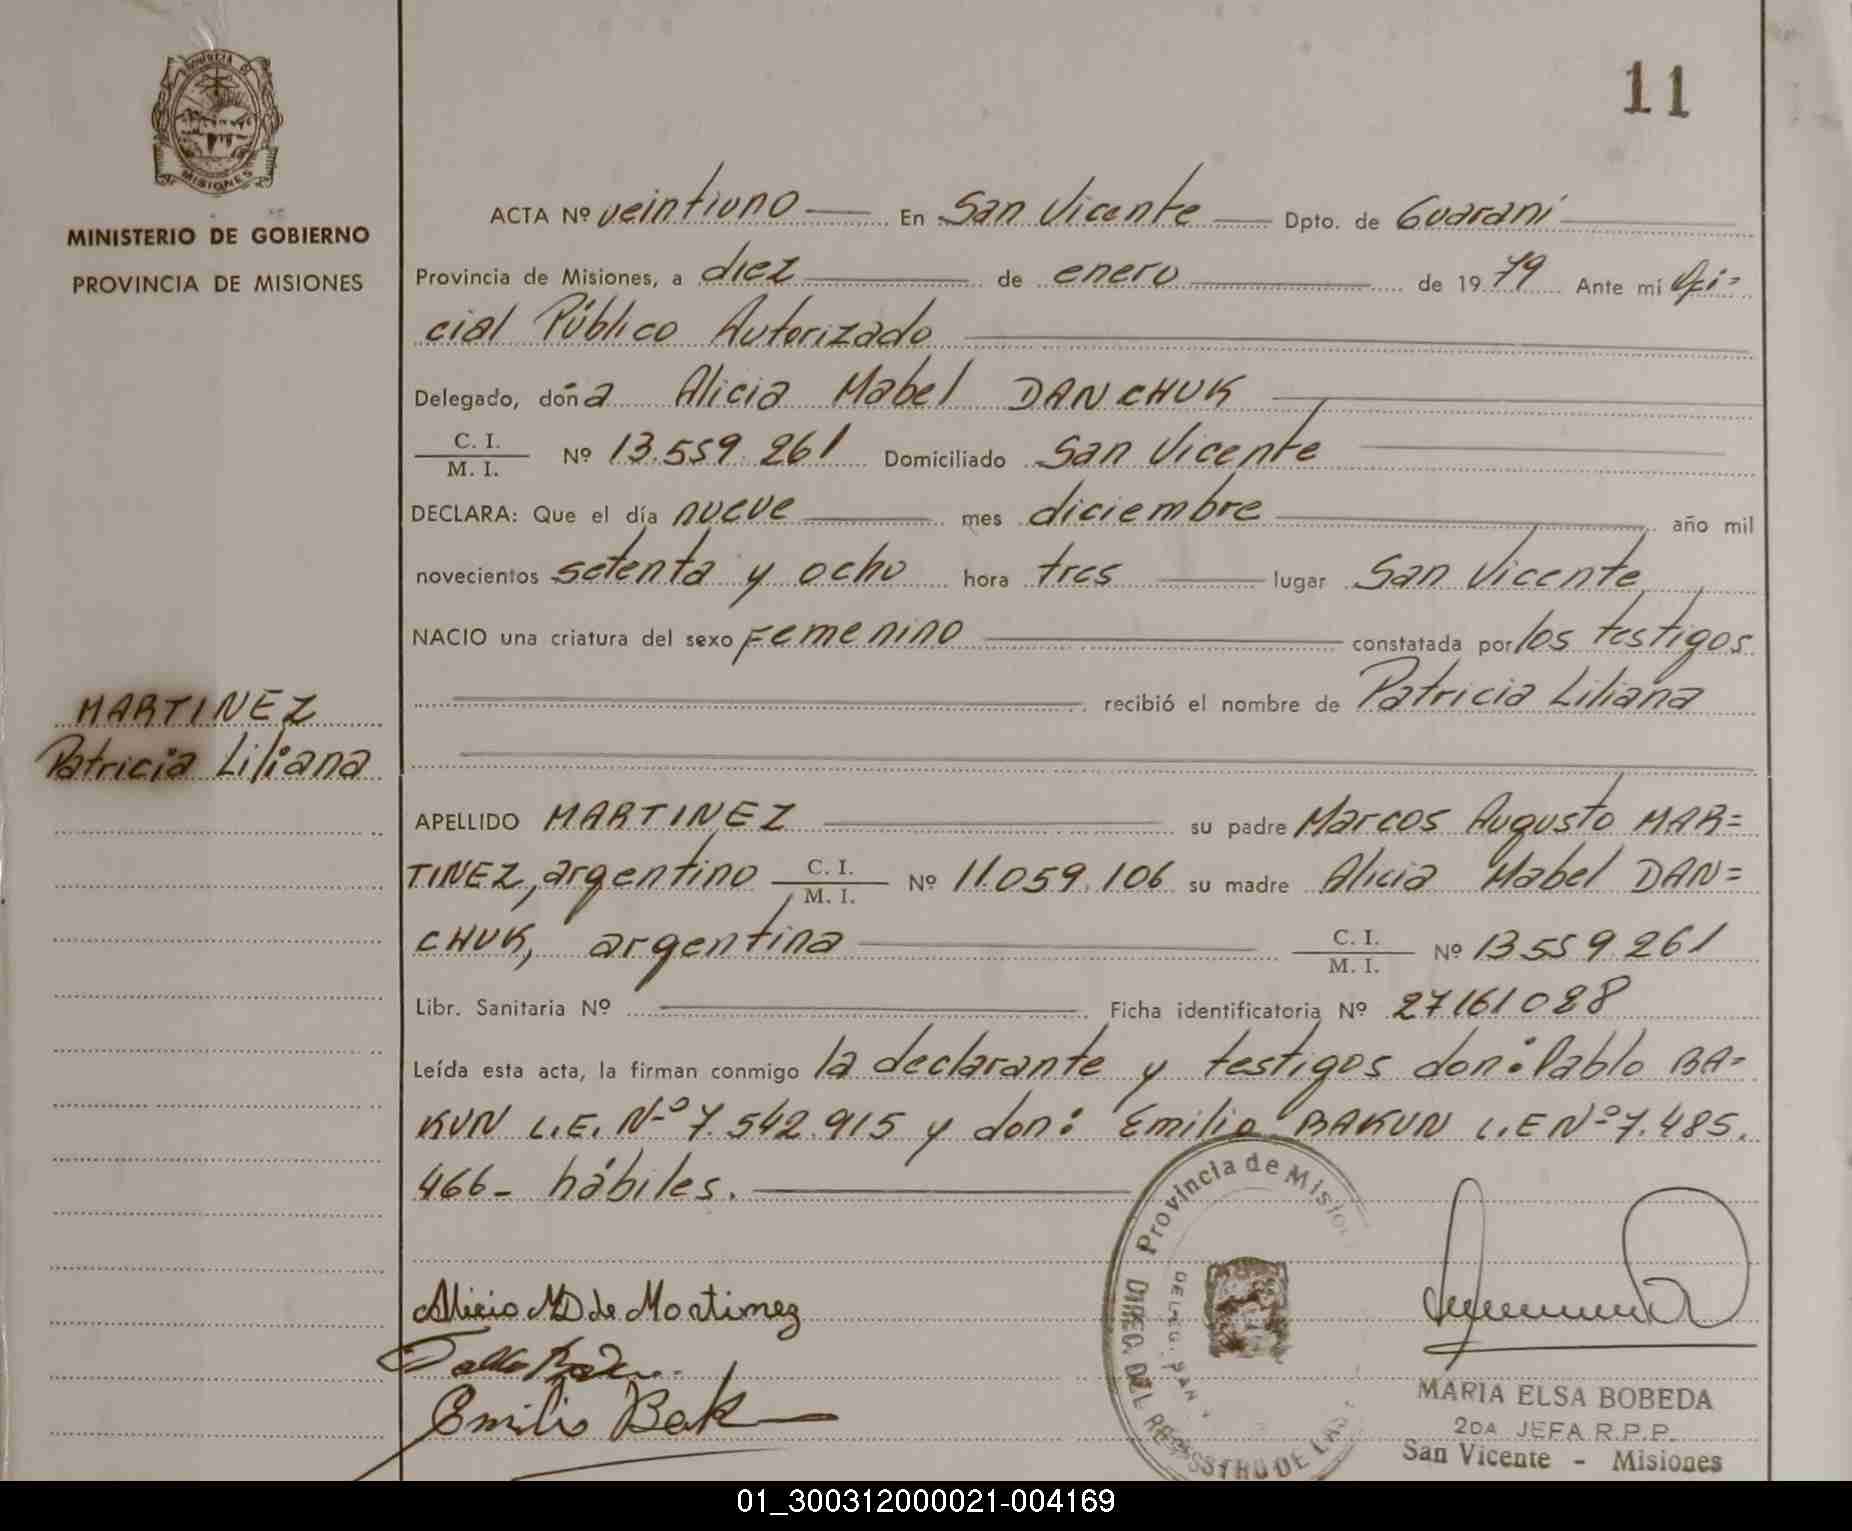 11
PROVINCIA DE
MISIONES
MINISTERIO DE GOBIERNO
PROVINCIA DE MISIONES
ACTA Nº veintiuno En San Vicente Dpto. de Guaraní
Provincia de Misiones, a diez de enero de 1979 Ante mi Ofi=
cial Público Autorizado
Delegado, doña Alicia Mabel DANCHUK
C. I.
M. I. Nº 13.559.261 Domiciliado San Vicente
DECLARA: Que el día nueve mes diciembre año mil
novecientos setenta y ocho hora tres lugar San Vicente
NACIO una criatura del sexo Femenino constatada por los testigos
recibió el nombre de Patricia Liliana
MARTINEZ
Patricia Liliana
APELLIDO MARTINEZ su padre Marcos Augusto MAR=
TINEZ, argentino C. I. M. I. Nº 11.059.106 su madre Alicia Mabel DAN=
CHUK, argentina C. I. M. I. Nº 13.559.261
Libr. Sanitaria Nº Ficha identificatoria Nº 27161028
Leída esta acta, la firman conmigo la declarante y testigos don: Pablo BA=
KUN L.E. Nº 7.542.915 y don: Emilio BAKUN L.E Nº 7.485.
466- hábiles.
Provincia de Mision
DIREC. DEL REGISTRO DE LAS
DELEG.
Alicia M D de Martinez
Emilio Bak
MARIA ELSA BOBEDA
2DA JEFA R.P.P.
San Vicente - Misiones
01_300312000021-004169